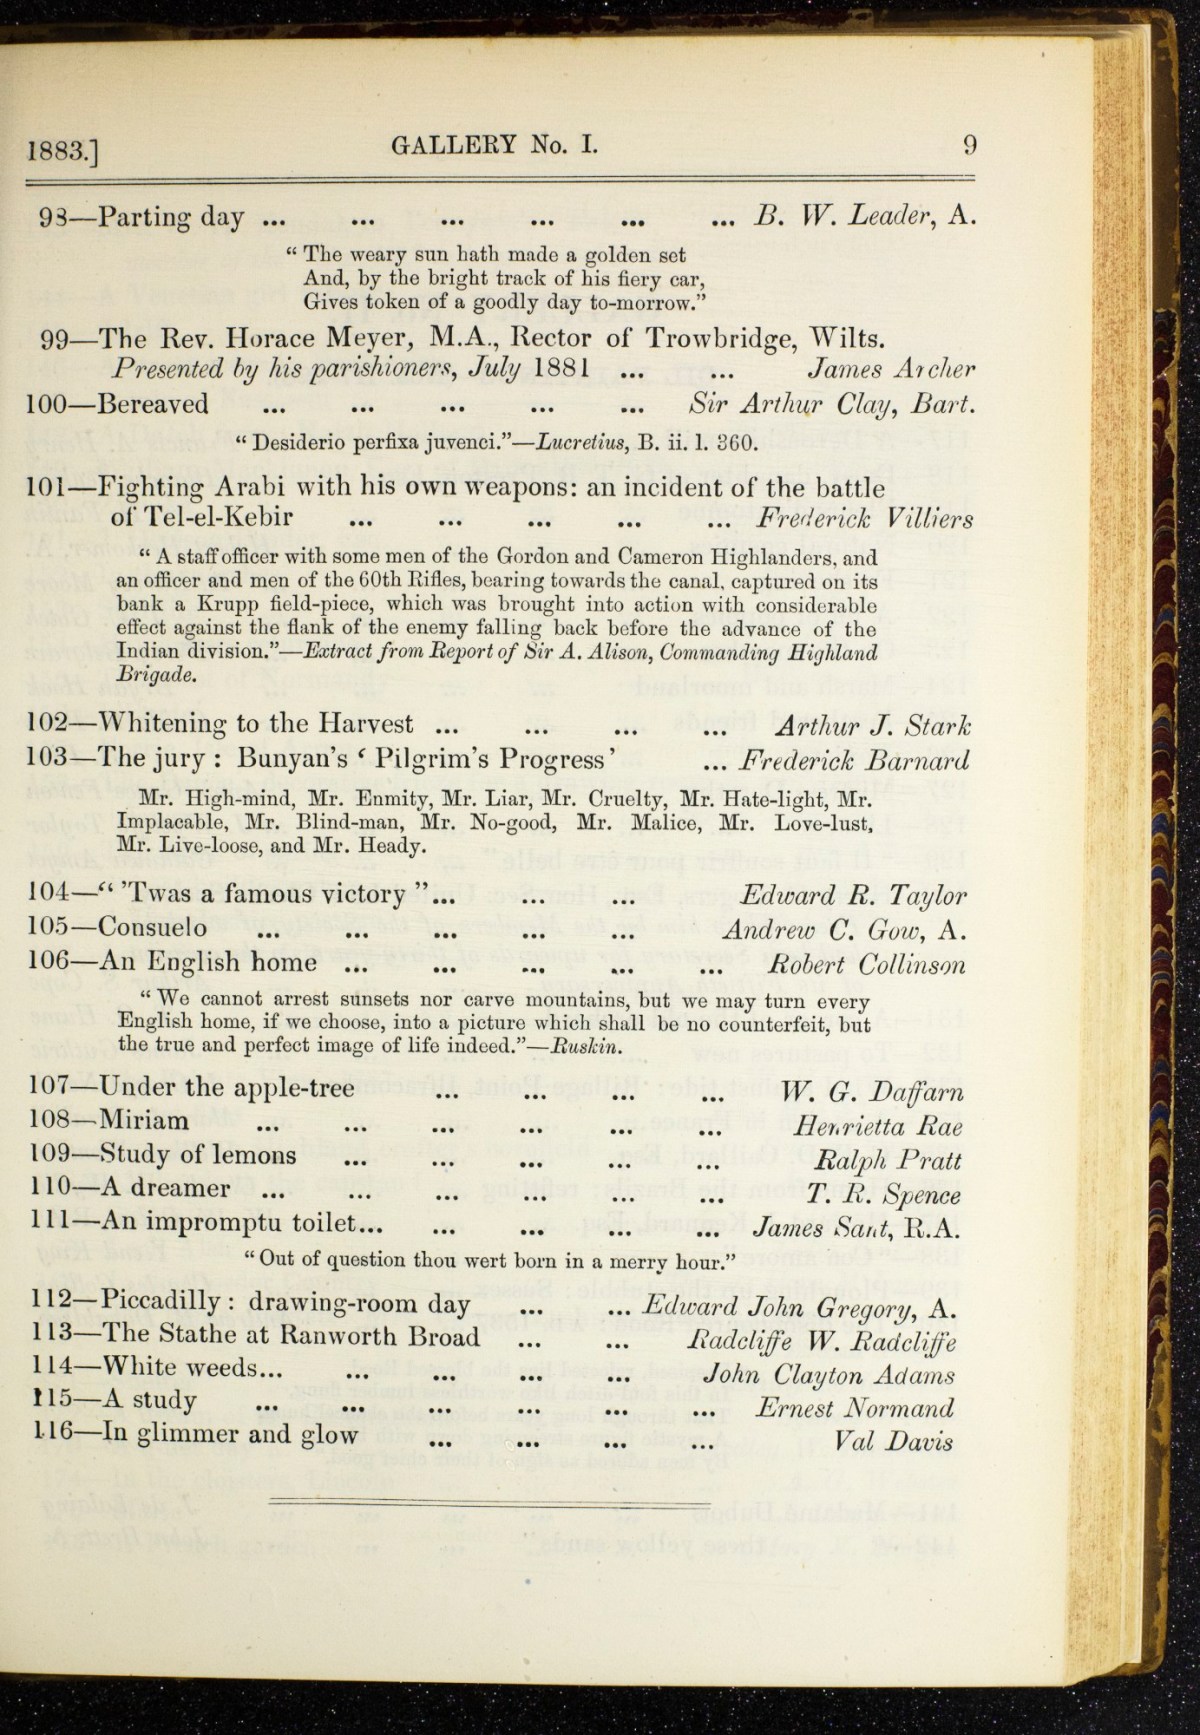 1883.] GALLERY No. I. 9
98—Parting day ... ... ... ... ... ... B. W. Leader, A.
“ The weary sun hath made a golden set
And, by the bright track of his fiery car,
Gives token of a goodly day to-morrow.”
99—The Rev. Horace Meyer, M.A., Rector of Trowbridge, Wilts.
Presented by his parishioners, July 1881 ... ... James Archer
100—Bereaved ... ... ... ... ... Sir Arthur Clay, Bart.
“ Desiderio perfixa juvenci.”—Lucretius, B. ii. l. 360.
101—Fighting Arabi with his own weapons: an incident of the battle
of Tel-el-Kebir ... ... ... ... ... Frederick Villiers
“ A staff officer with some men of the Gordon and Cameron Highlanders, and
an officer and men of the 60th Rifles, bearing towards the canal, captured on its
bank a Krupp field-piece, which was brought into action with considerable
effect against the flank of the enemy falling back before the advance of the
Indian division.”—Extract from Report of Sir A. Alison, Commanding Highland
Brigade.
102—Whitening to the Harvest ... ... ... ... Arthur J. Stark
103—The jury : Bunyan’s ‘ Pilgrim’s Progress ’ ... Frederick Barnard
Mr. High-mind, Mr. Enmity, Mr. Liar, Mr. Cruelty, Mr. Hate-light, Mr.
Implacable, Mr. Blind-man, Mr. No-good, Mr. Malice, Mr. Love-lust,
Mr. Live-loose, and Mr. Heady.
104—“ ’Twas a famous victory ” ... ... ... Edward R. Taylor
105—Consuelo ... ... ... ... ... Andrew C. Gow, A.
106—An English home ... ... ... ... ... Robert Collinson
“ We cannot arrest sunsets nor carve mountains, but we may turn every
English home, if we choose, into a picture which shall be no counterfeit, but
the true and perfect image of life indeed.”—Ruskin.
107—Under the apple-tree ... ... ... ... W. G. Daffarn
108—Miriam ... ... ... ... ... ... Henrietta Rae
109—Study of lemons ... ... ... ... ... Ralph Pratt
110—A dreamer ... ... ... ... ... ... T. R. Spence
111—An impromptu toilet... ... ... ... ... James Sant, R.A.
“ Out of question thou wert born in a merry hour.”
112—Piccadilly : drawing-room day ... ... Edward John Gregory, A.
113—The Stathe at Ranworth Broad ... ... Radcliffe W. Radcliffe
114—White weeds... ... ... ... ... John Clayton Adams
115—A study ... ... ... ... ... ... Ernest Normand
116—In glimmer and glow ... ... ... ... Val Davis